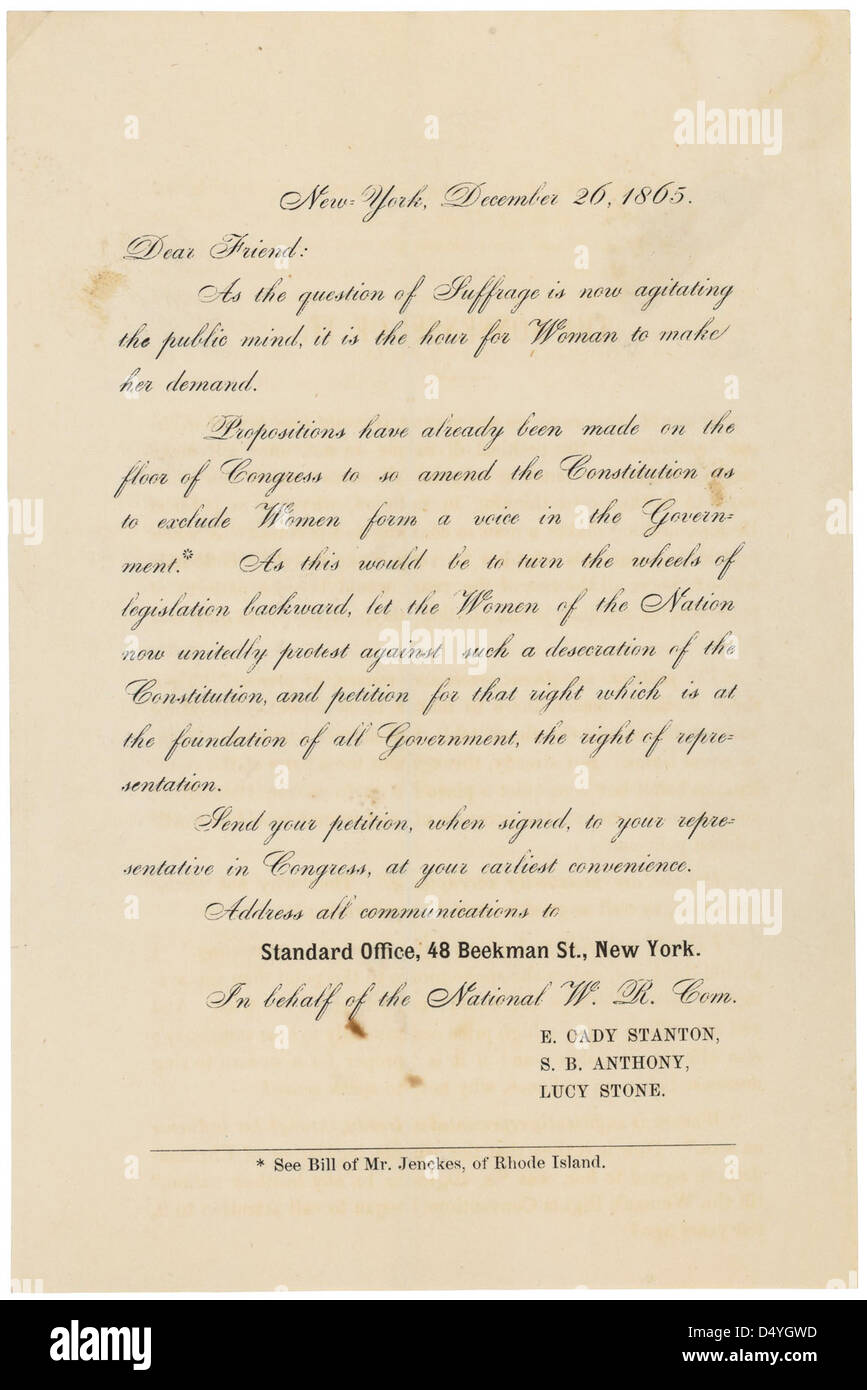 New=York, December 26, 1865.
Dear Friend:
As the question of Suffrage is now agitating
the public mind, it is the hour for Woman to make
her demand.
Propositions have already been made on the
floor of Congress to so amend the Constitution as
to exclude Women form a voice in the Govern=
ment.* As this would be to turn the wheels of
legislation backward, let the Women of the Nation
now unitedly protest against such a desecration of the
Constitution, and petition for that right which is at
the foundation of all Government, the right of repre=
sentation.
Send your petition, when signed, to your repre=
sentative in Congress, at your earliest convenience.
Address all communications to
Standard Office, 48 Beekman St., New York.
In behalf of the National W. R. Com.
E. CADY STANTON,
S. B. ANTHONY,
LUCY STONE.
* See Bill of Mr. Jenckes, of Rhode Island.
alamy
Image ID: D4YGWD
www.alamy.com